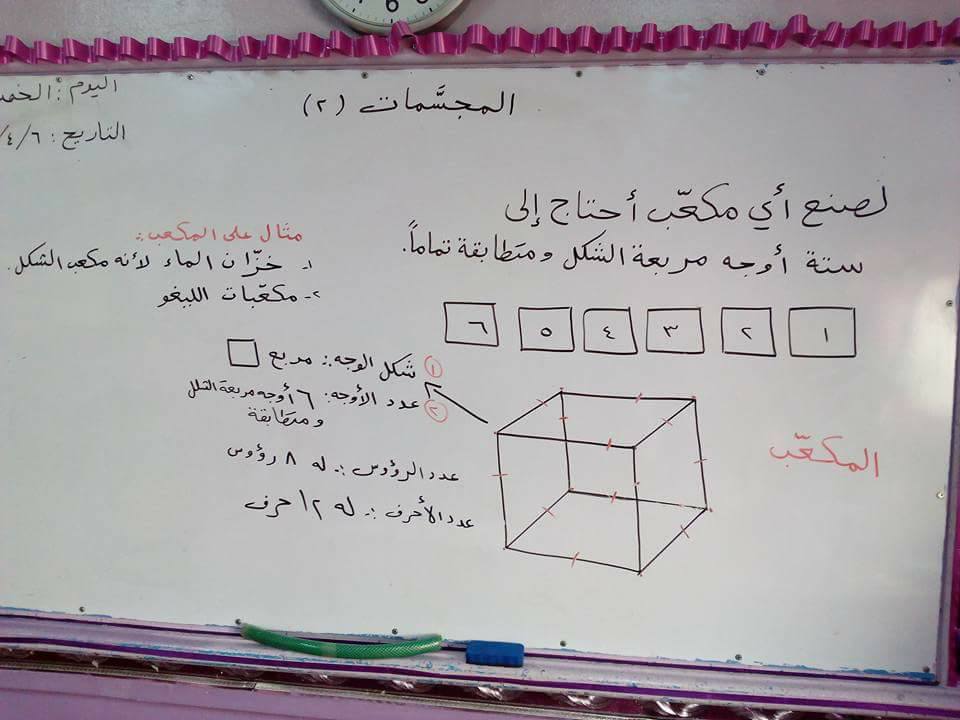 المجسَّمات (٢)
اليوم : الخمد
التاريخ : ٤/٦/
لصنع أي مكعّب أحتاج إلى
ستة أوجه مربعة الشكل ومتطابقة تماماً.
١ ٢ ٣ ٤ ٥ ٦
المكعّب
مثال على المكعب :.
١- خزّان الماء لأنه مكعب الشكل.
٢- مكعّبات الليغو
① شكل الوجه :. مربع
② عدد الأوجه : ٦ أوجه مربعة الشكل
ومتطابقة
عدد الرؤوس :. له ٨ رؤوس
عدد الأحرف :. له ١٢ حرف
6